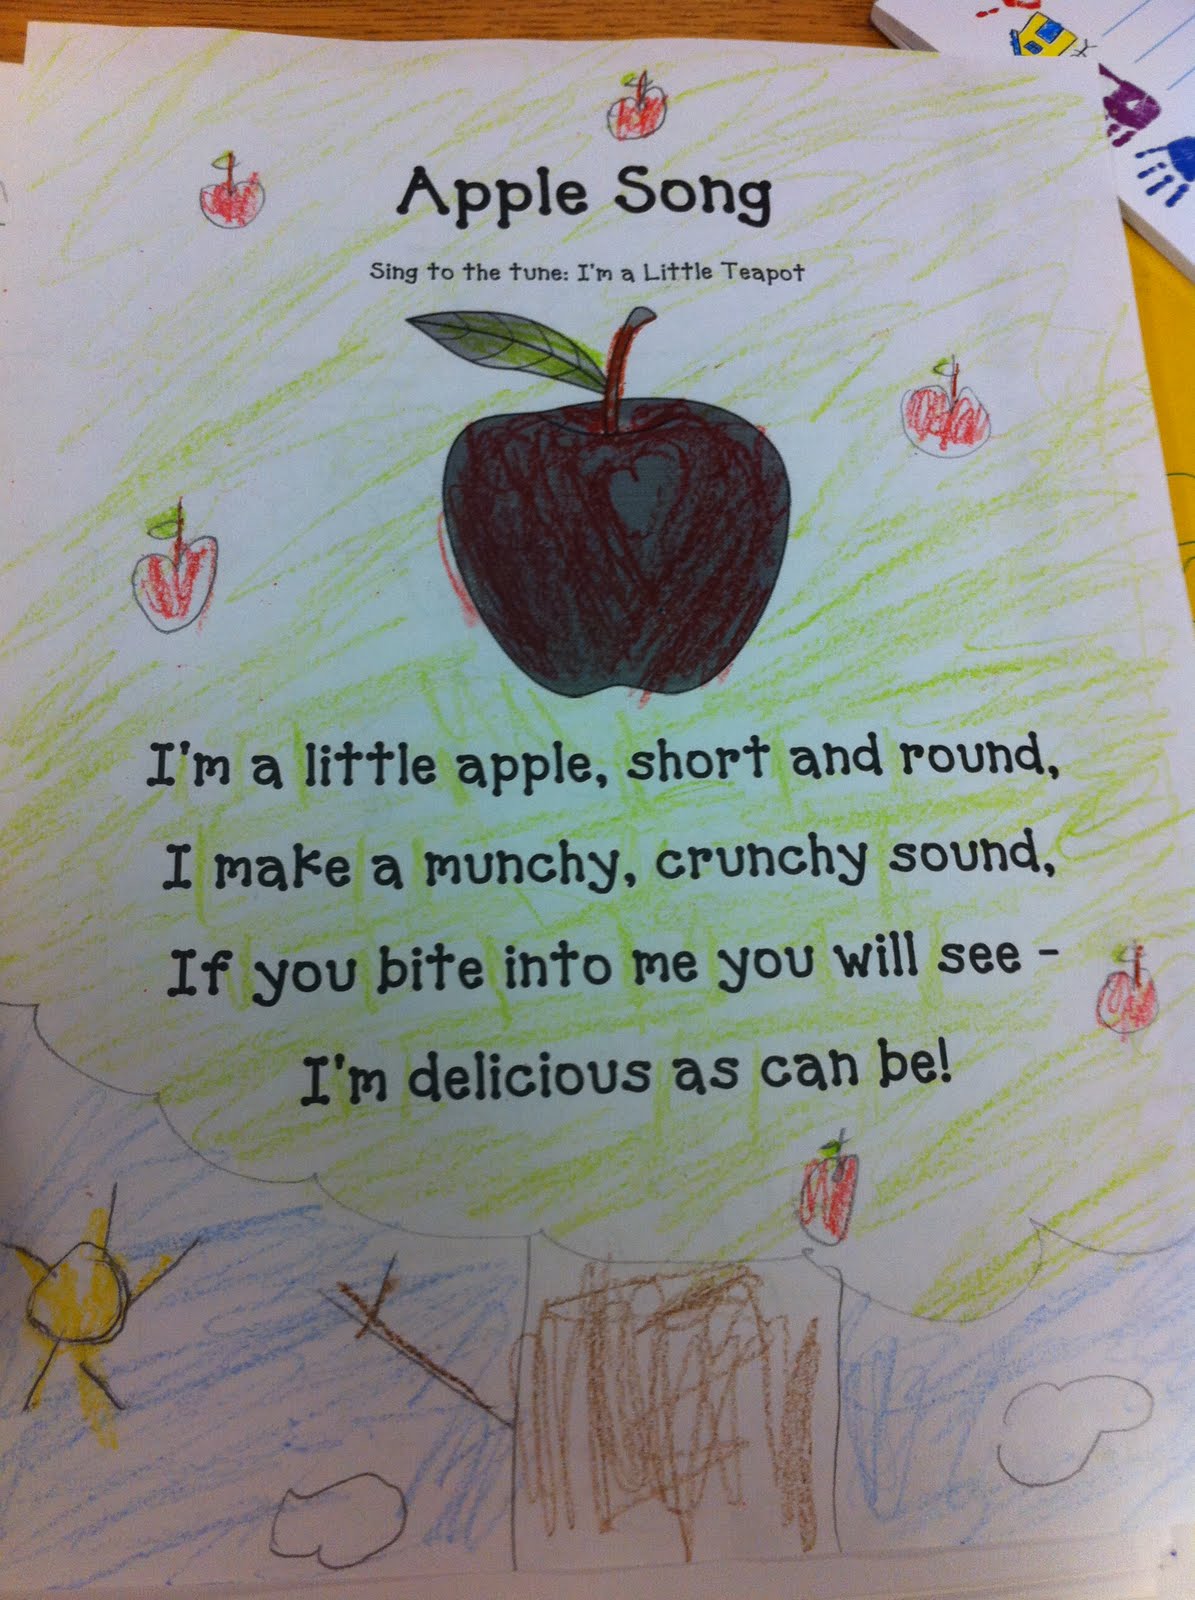 Apple Song
Sing to the tune: I'm a Little Teapot
I'm a little apple, short and round,
I make a munchy, crunchy sound,
If you bite into me you will see -
I'm delicious as can be!